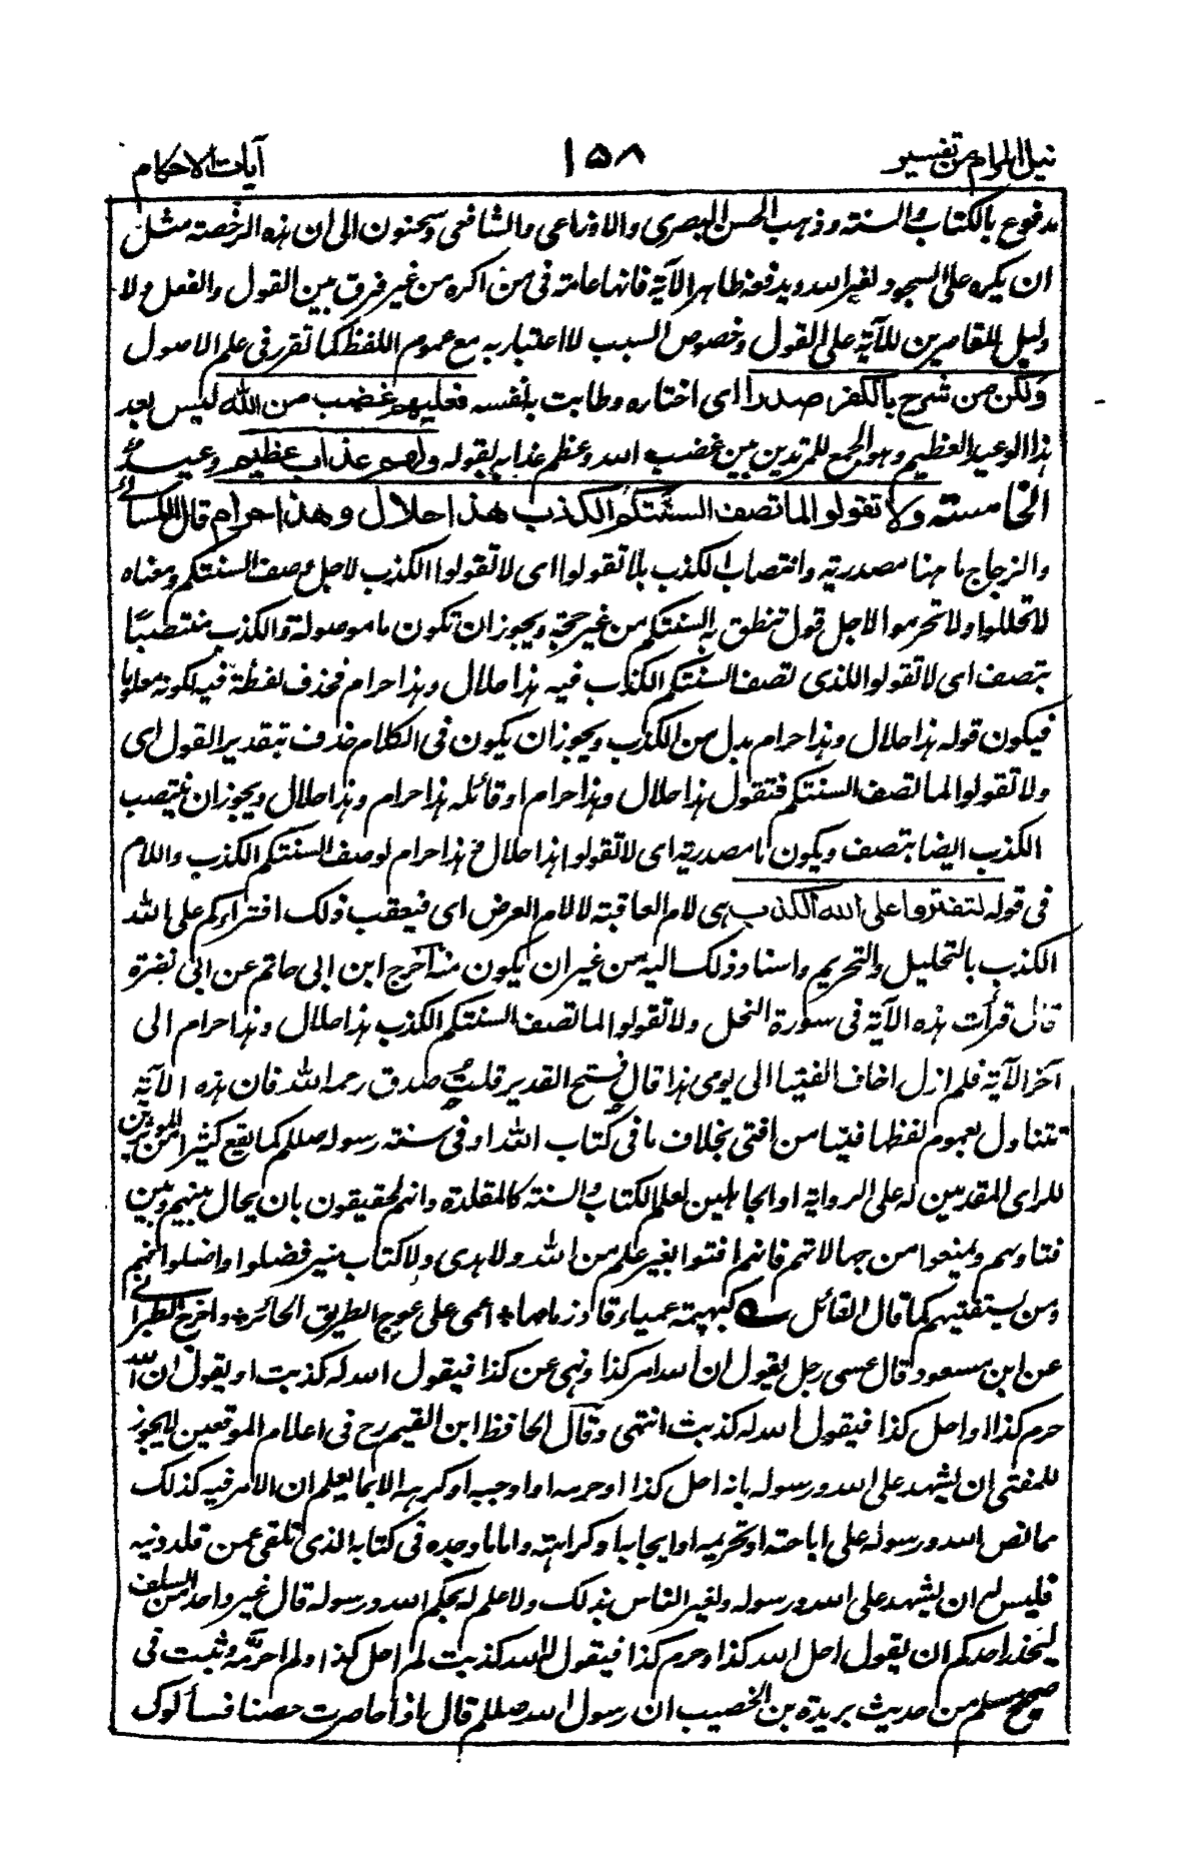 نيل المرام من تفسير
١٥٨
آيات الاحكام
مدفوع بالكتاب والسنة وذهب الحسن البصرى والاوزاعى والشافعى وسحنون الى ان هذه الرخصة مثل
ان يكره على السجود لغير الله ويدفعه ظاهر الآية فانها عامة فى من اكره من غير فرق بين القول والفعل ولا
دليل للقاصرين للآية على القول وخصوص السبب لا اعتبار به مع عموم اللفظ كما تقرر فى علم الاصول
ولكن من شرح بالكفر صدرا اى اختاره وطابت به نفسه فعليهم غضب من الله ليس بعد
هذا الوعيد العظيم وهو الجمع للمرتدين بين غضب الله وعظم عذابه بقوله ولهم عذاب عظيم وعيد
الخامسة ولا تقولوا لما تصف السنتكم الكذب هذا حلال وهذا حرام قال الكسائى
والزجاج ما هنا مصدرية وانتصاب الكذب بلا تقولوا اى لا تقولوا الكذب لاجل وصف السنتكم ومعناه
لا تحللوا ولا تحرموا لاجل قول تنطق به السنتكم من غير حجة ويجوز ان تكون ما موصولة والكذب منتصبا
بتصف اى لا تقولوا للذى تصف السنتكم الكذب فيه هذا حلال وهذا حرام فحذف لفظة فيه لكونه معلوما
فيكون قوله هذا حلال وهذا حرام بدل من الكذب ويجوز ان يكون فى الكلام حذف بتقدير القول اى
ولا تقولوا لما تصف السنتكم فتقول هذا حلال وهذا حرام او قائله هذا حرام وهذا حلال ويجوز ان ينتصب
الكذب ايضا بتصف ويكون ما مصدرية اى لا تقولوا هذا حلال هذا حرام لوصف السنتكم الكذب واللام
فى قوله لتفتروا على الله الكذب هى لام العاقبة لا لام العرض اى فيعقب ذلك افتراؤكم على الله
الكذب بالتحليل والتحريم واسناد ذلك اليه من غير ان يكون منه اخرج ابن ابى حاتم عن ابى نضرة
قال قرأت هذه الآية فى سورة النحل ولا تقولوا لما تصف السنتكم الكذب هذا حلال وهذا حرام الى
آخر الآية فلم ازل اخاف الفتيا الى يومى هذا قال فى فتح القدير قلت صدق رحمه الله فان هذه الآية
تتناول بعموم لفظها فتيا من افتى بخلاف ما فى كتاب الله او فى سنة رسوله صللم كما يقع كثيرا من المؤثرين
للراى المقدمين له على الرواية او الجاهلين لعلم الكتاب والسنة كالمقلدة وانهم لحقيقون بان يحال بينهم وبين
فتاويهم ويمنعوا من جهالاتهم فانهم افتوا بغير علم من الله ولا هدى ولا كتاب منير فضلوا واضلوا فهم
ومن يستفتيهم كما قال القائل كبهيمة عمياء قاد زمامها * اعمى على عوج الطريق الحائر * واخرج الطبرانى
عن ابن مسعود قال عسى رجل يقول ان الله امر كذا ونهى عن كذا فيقول الله له كذبت او يقول ان الله
حرم كذا او احل كذا فيقول الله له كذبت انتهى وقال الحافظ ابن القيم رح فى اعلام الموقعين لا يجوز
للمفتى ان يشهد على الله ورسوله بانه احل كذا او حرمه او اوجبه او كرهه الا بما يعلم ان الامر فيه كذلك
مما نص الله ورسوله على اباحته او تحريمه او ايجابه او كراهته واما ما وجده فى كتابه الذى تلقى عمن قلد دينه
فليس له ان يشهد على الله ورسوله ولغير الناس بذلك ولا علم له بحكم الله ورسوله قال غير واحد من السلف
ليحذر احدكم ان يقول احل الله كذا وحرم كذا فيقول له الله كذبت لم احل كذا ولم احرمه وثبت فى
صحيح مسلم من حديث بريدة بن الخصيب ان رسول الله صللم قال اذا حاصرت حصنا فسألوك